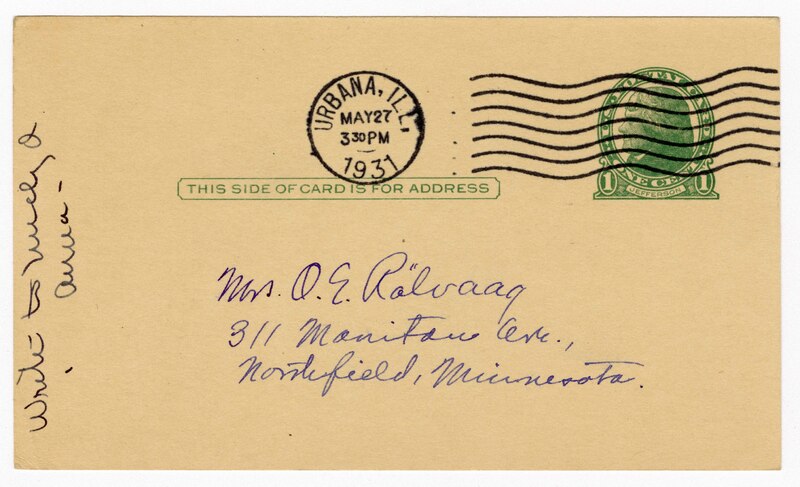 URBANA, ILL.
MAY 27
3 30 PM
1931
THIS SIDE OF CARD IS FOR ADDRESS
1 JEFFERSON 1
Mrs. O. E. Rölvaag
311 Manitou Ave.,
Northfield, Minnesota.
Write to
Anna -